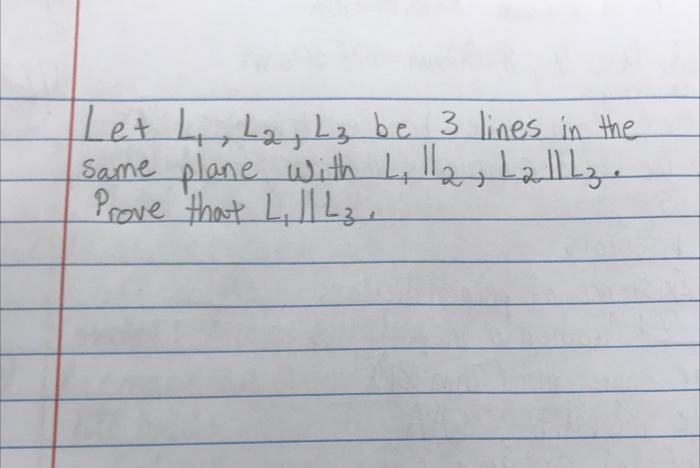 Let L₁, L₂, L₃ be 3 lines in the
same plane with L₁ ||₂, L₂ || L₃.
Prove that L₁ || L₃.